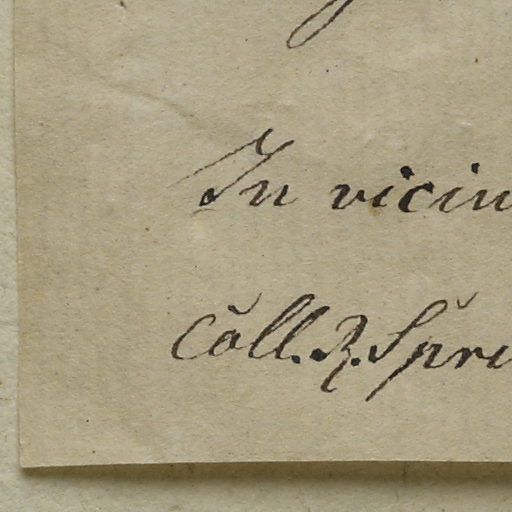 In vicin
Coll. R. Spru